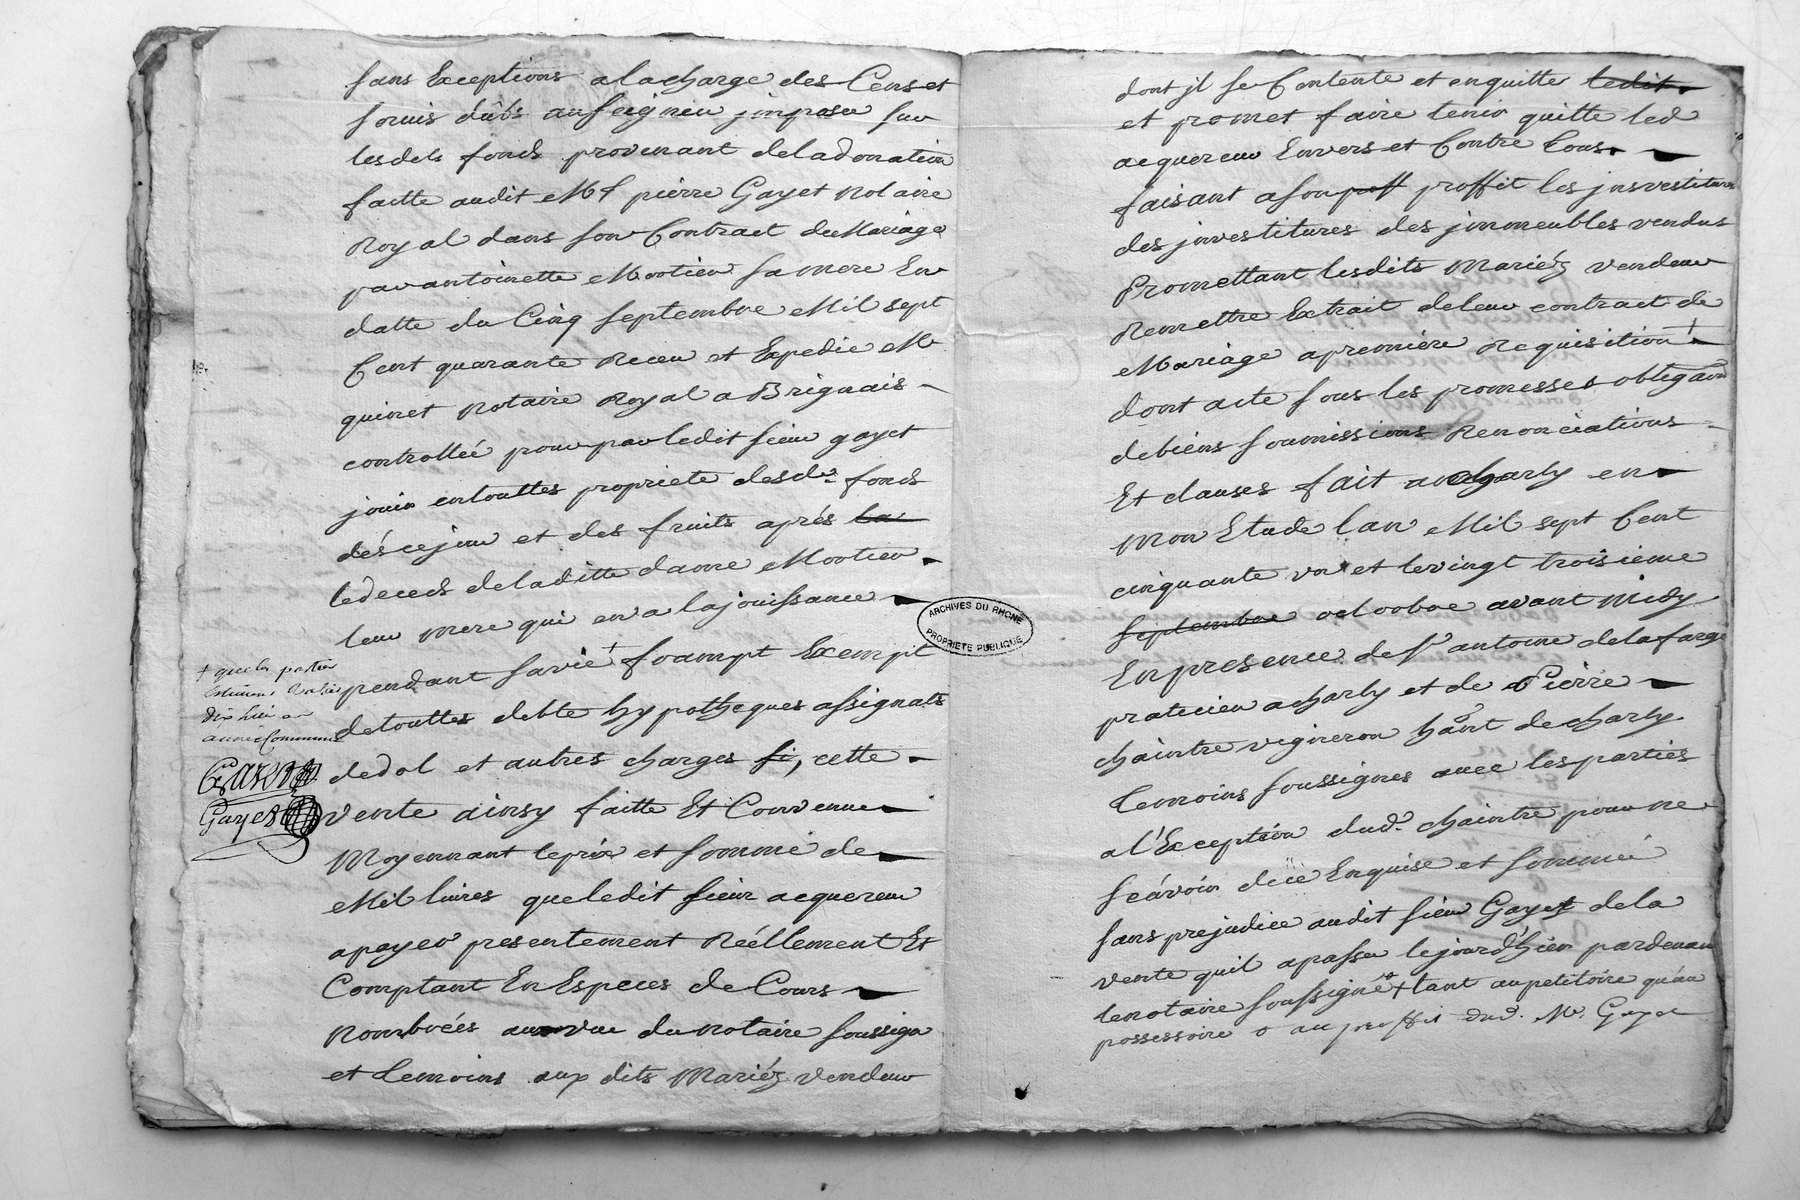 sans Exceptions a la charge des Cens et
servis dûbs au seigneur jmposés sur
lesdits fonds provenant de la donation
faitte audit Mᵉ pierre Gayet notaire
Royal dans son Contract de Mariage
par antoinette Mortier sa mere En
datte du Cinq septembre Mil sept
Cent quarante Receu et Expedie Mᵉ
quinet notaire Royal a Brignais
controllée pour par ledit sieur gayet
jouir en touttes propriete desdᵗˢ fonds
dés ce jour et des fruits aprés la
le deceds de la ditte dame Mortier
leur mere qui en a la jouissance
pendant sa vie + franpt Exempt
de touttes debte hypotheques assignats
de dol et autres charges si, cette
vente ainsy faitte Et Convenue
Moyennant le prix et somme de
Mil livres que ledit sieur acquereur
a payer presentement Réellement Et
Comptant En Especes de Cours
nombrées au vue du notaire soussigné
et temoins aux dits Mariéz vendeur
+ que les parties
Estiment valoir
dix huit en
année Commune
Garin
Gayet
ARCHIVES DU RHONE
PROPRIETE PUBLIQUE
dont jl se Contente et en quitte ledit
et promet faire tenir quitte led
acquereur Envers et Contre tous.
faisant a son proff proffit les jnsvestitures
des jnvestitures des jmmeubles vendus
Promettant lesdits Mariéz vendeur
Remettre Extrait de leur contract de
Mariage a premiere Requisition +
dont acte sous les promesses obligaôn
de biens soumissions Renonciations
Et clauses fait a charly en
mon Etude lan Mil sept Cent
cinquante vn et le vingt troisieme
septembre octoobre avant midy
En presence de sʳ antoine delafarge
praticien a charly et de Pierre
chaintre vigneron hant de charly
temoins soussignes avec les parties
a l'Exception dudᵗ chaintre pour ne
scávoir de ce Enquise et sommé
sans prejudice audit sieur Gayet de la
vente quil a passé le jourd'hier pardevant
le notaire soussigné + tant au petitoire qu'au
possessoire o au proffit dud. Mᵉ. Gayet